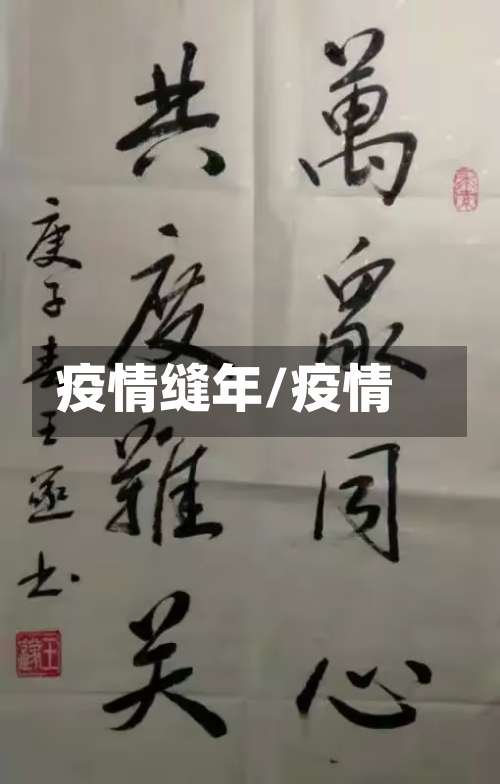 萬衆同心
共度難关
庚子春王书
疫情缝年/疫情